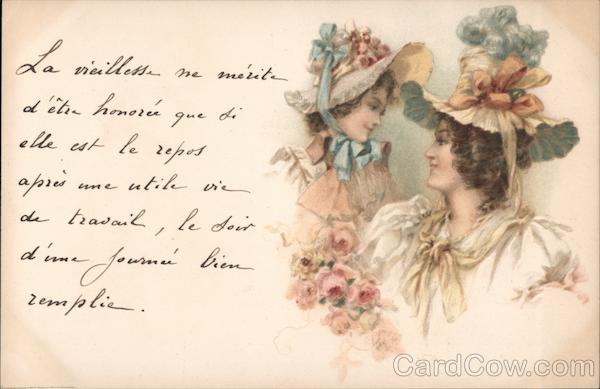 La vieillesse ne mérite
d'être honorée que si
elle est le repos
après une utile vie
de travail, le soir
d'une journée bien
remplie.
CardCow.com